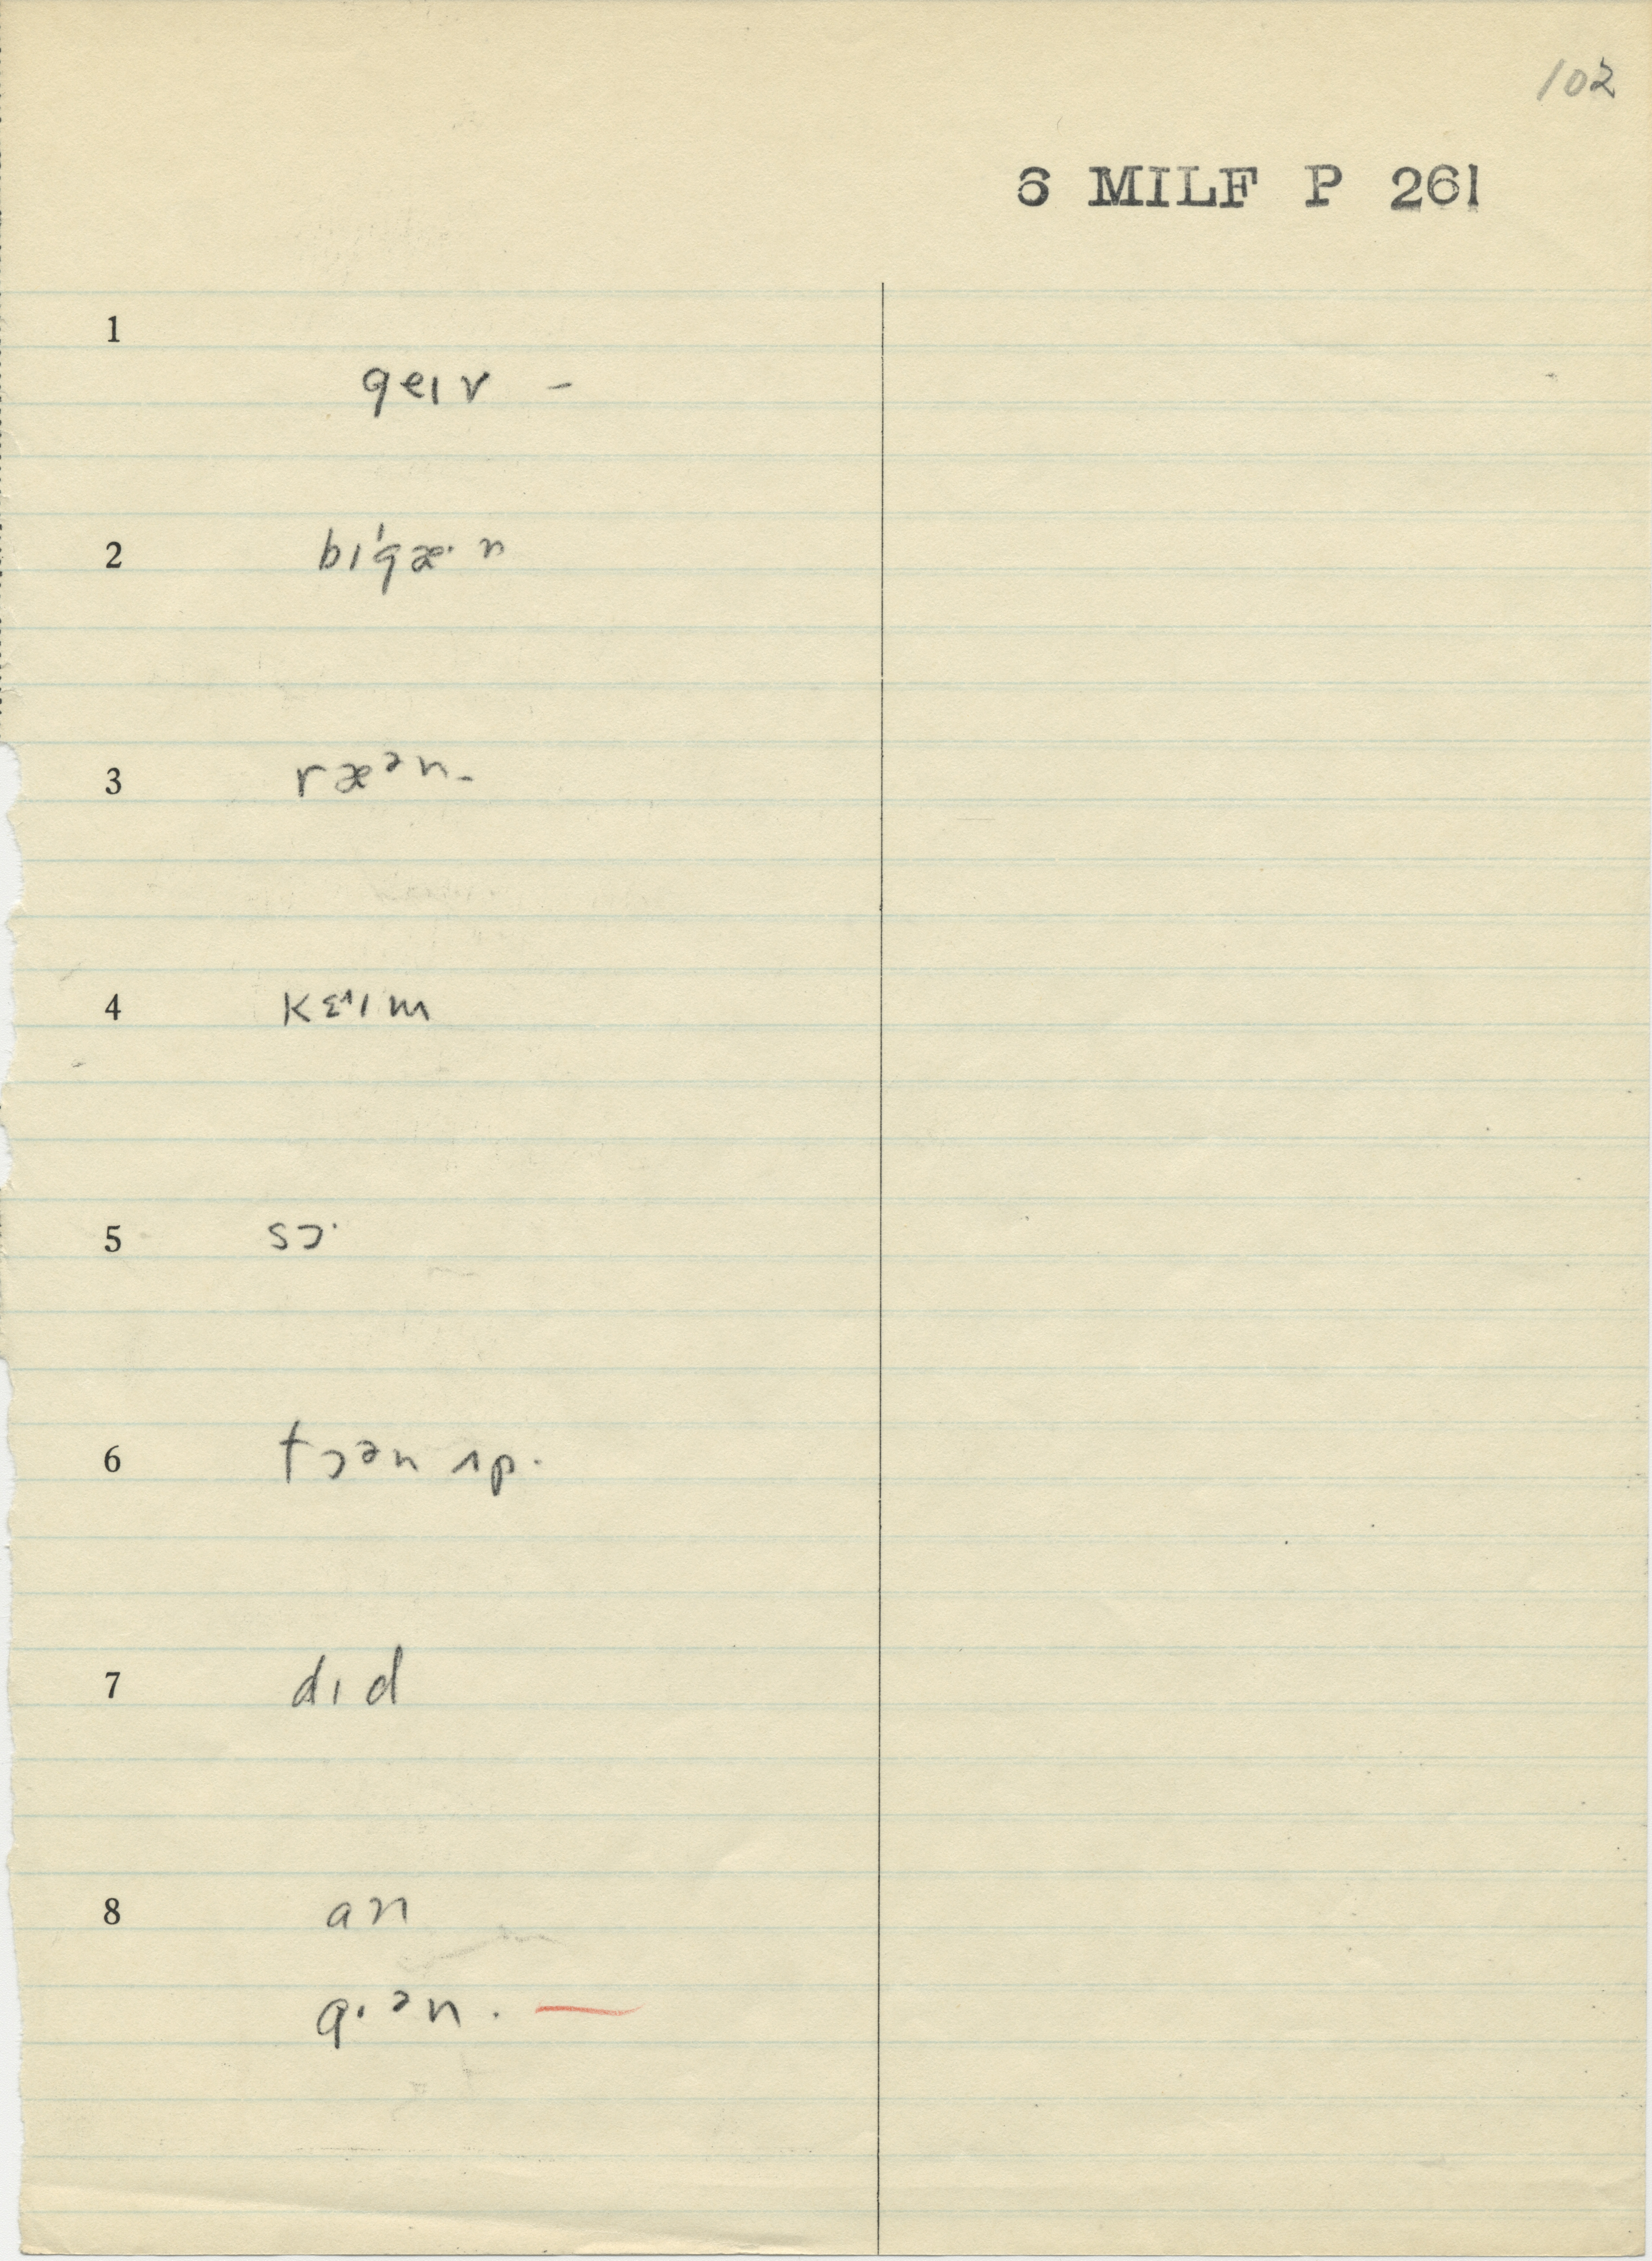 102
6 MILF P 261
1
geɪv -
2 bɪ'gæ· n
3 ræᵊn-
4 kɛ˄ɪm
5 sɔ·
6 tɔᵊn ʌp·
7 dɪd
8 an
gɔᵊn. —